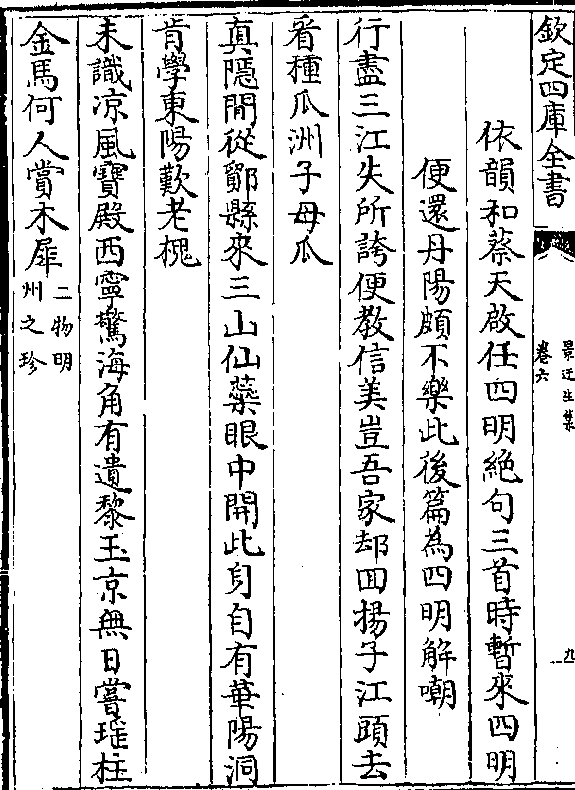 欽定四庫全書
景迂生集
卷六
九
依韻和蔡天啟任四明絶句三首時暫來四明
便還丹陽頗不樂此後篇為四明解嘲
行盡三江失所誇便教信美豈吾家却回揚子江頭去
看種瓜洲子母瓜
真隱閒從鄮縣來三山仙藥眼中開此身自有華陽洞
肯學東陽歎老槐
未識凉風寶殿西寧驚海角有遺黎玉京無日嘗琟柱
金馬何人賞木犀二物明
州之珍